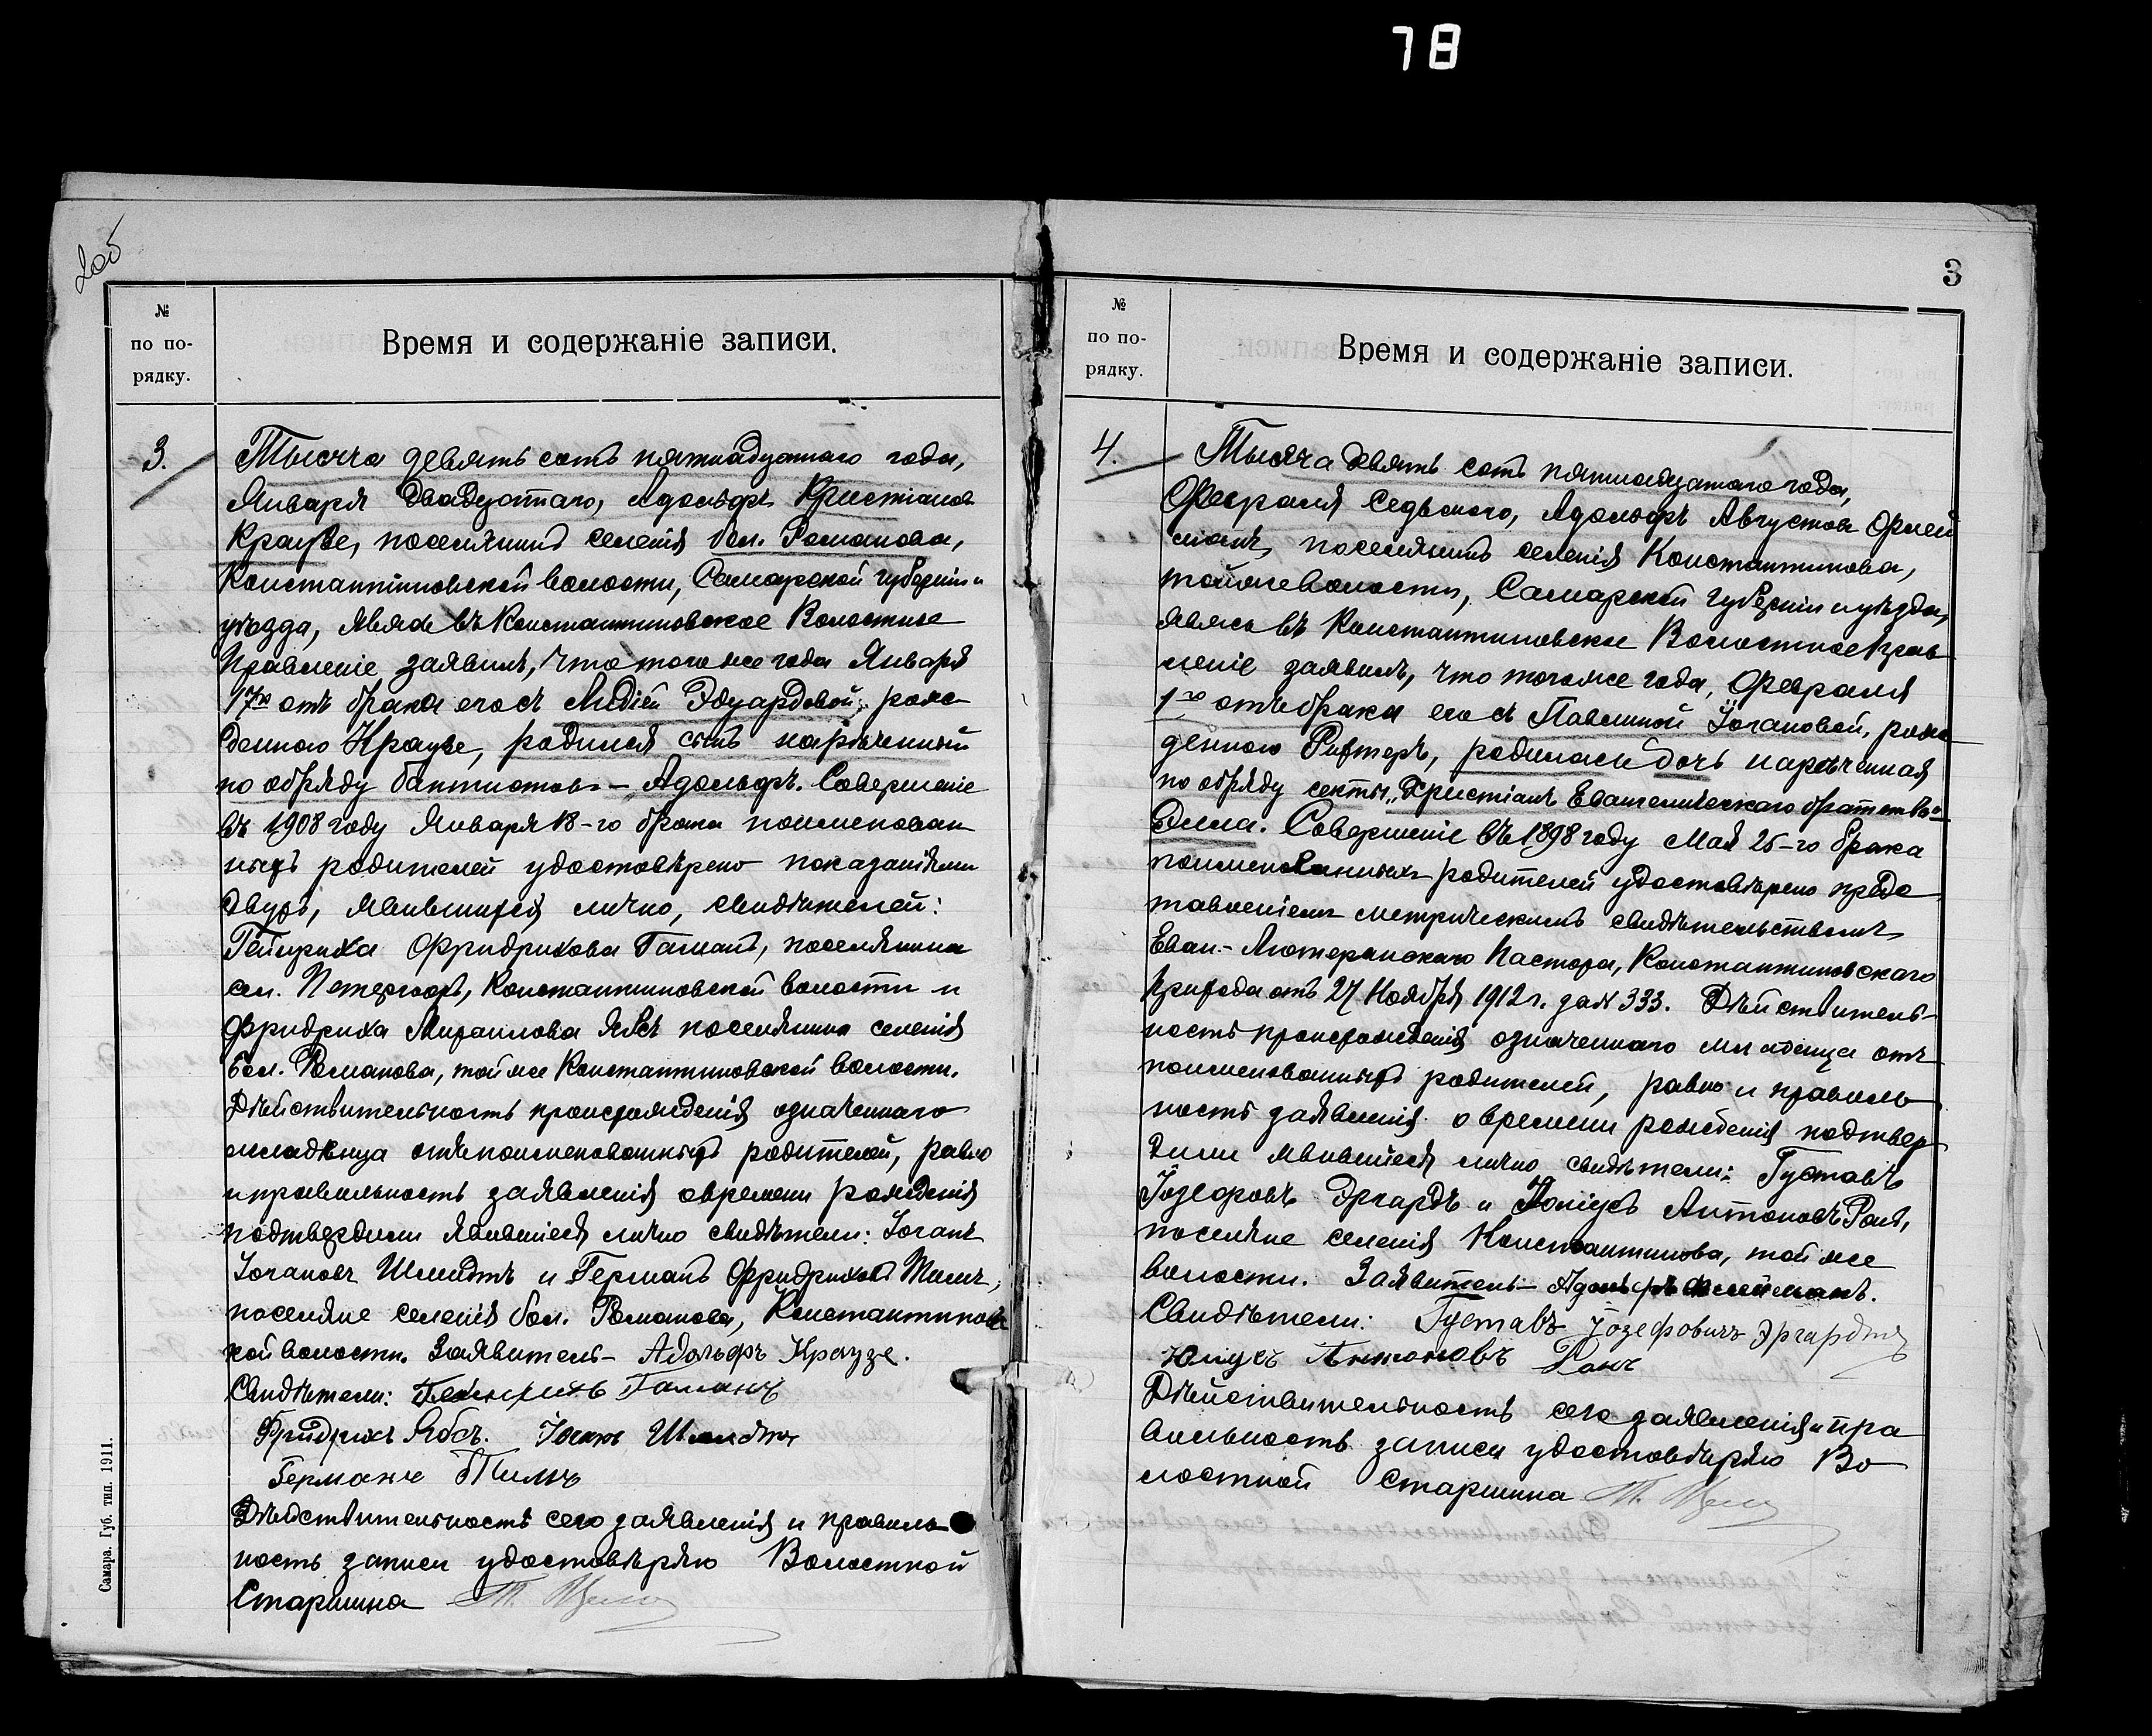 78
2об
№
по по-
рядку.
Время и содержаніе записи.
3.
Тысяча девять сотъ пятнадцатаго года,
Января двадцатаго, Адольфъ Кристіановъ
Краузе, поселянинъ селенія бол. Романова,
Константиновской волости, Самарской губерніи и
уѣзда, явясь въ Константиновское Волостное
Правленіе заявилъ, что того же года Января
17го отъ брака его съ Лидіей Эдуардовой, рож-
деннаго Краузе, родился сынъ нарѣченный
по обряду баптистовъ - Адольфъ. Совершеніе
въ 1908 году Января 18-го брака поименован
ныхъ родителей удостовѣрено показаніями
двухъ, явившихся лично, свидѣтелей:
Гейнриха Фридрихова Гаманъ, поселянина
сел. Петергофъ, Константиновской волости и
Фридриха Михаилова Ябсъ поселянина селенія
бол. Романова, той же Константиновской волости.
Дѣйствительность происхожденія означеннаго
младенца отъ поименованныхъ родителей, равно
и правильность заявленія о времени рожденія
подтвердили явившіеся лично свидѣтели: Іоганъ
Іогановъ Шмидтъ и Германъ Фридриховъ Тимъ,
поселяне селенія бол. Романова, Константинов
кой волости. Заявитель - Адольфъ Краузе.
Свидѣтели: Гейнрихъ Гаманъ
Фридрихъ Ябсъ. Іоганъ Шмидтъ
Германъ Тимъ
Дѣйствительность сего заявленія и правиль
ность записи удостовѣряю Волостной
Старшина
Самара. Губ. тип. 1911.
3
№
по по-
рядку.
Время и содержаніе записи.
4.
Тысяча девять сотъ пятнадцатаго года,
Февраля седьмого, Адольфъ Августовъ Флей
манъ, поселянинъ селенія Константинова,
той же волости, Самарской губерніи и уѣзда,
явясь въ Константиновское Волостное Прав
леніе заявилъ, что того же года, Февраля
1го отъ брака его съ Павлиной Іогановой, рож
деннаго Рихтеръ, родилась дочь нарѣченная
по обряду секты „Христіанъ Евангелическаго братства"
Элла. Совершеніе въ 1898 году Мая 25-го брака
поименованныхъ родителей удостовѣрено предс
тавленіемъ метрическимъ свидѣтельствомъ
Еван.- Лютеранскаго Пастора, Константиновскаго
Прихода отъ 27 Ноября 1912 г. за № 333. Дѣйствитель-
ность происхожденія означеннаго младенца отъ
поименованныхъ родителей, равно и правиль
ность заявленія о времени рожденія подтвер
дили явившіеся лично свидѣтели: Густавъ
Іозефовъ Эргардъ и Юліусъ Антоновъ Ранъ,
поселяне селенія Константинова, той же
волости. Заявитель - Адольфъ Флейманъ.
Свидѣтели: Густавъ Іозефовичъ Эргардтъ
Юлiусъ Антоновъ Ранъ
Дѣйствительность сего заявленія и пра
вильность записи удостовѣряю Во
лостной Старшина